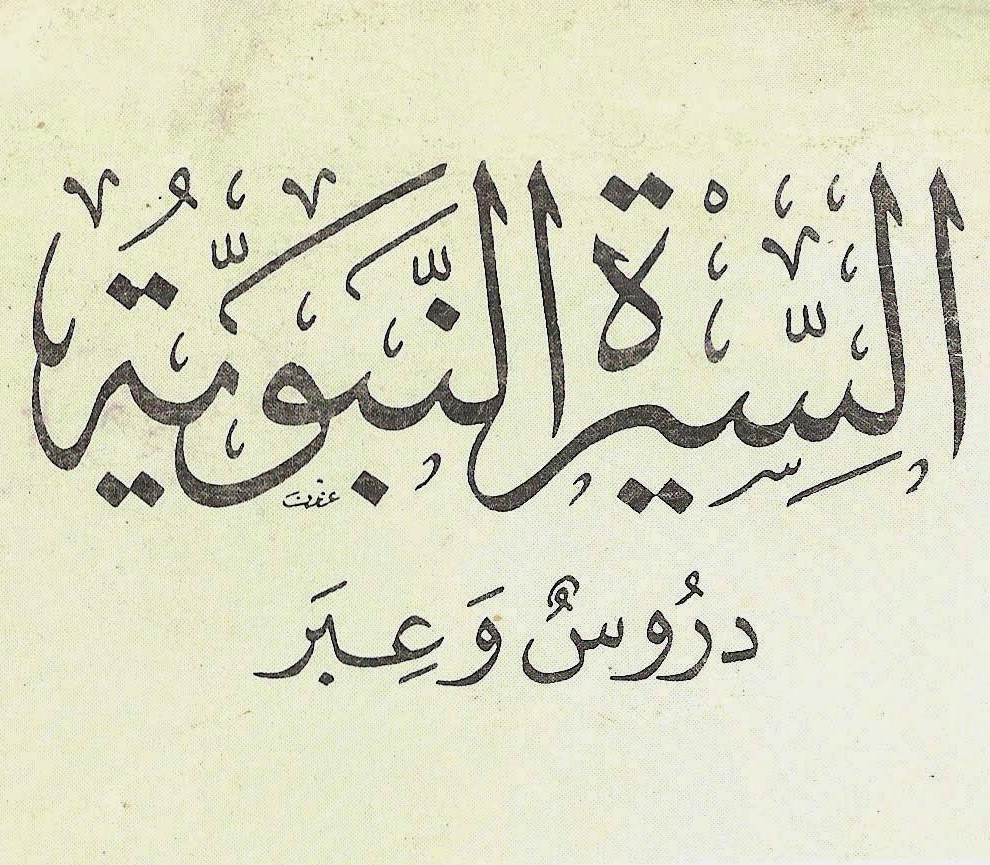 السِّيرة النَّبَويَّةُ
دُرُوسٌ وَعِبَر